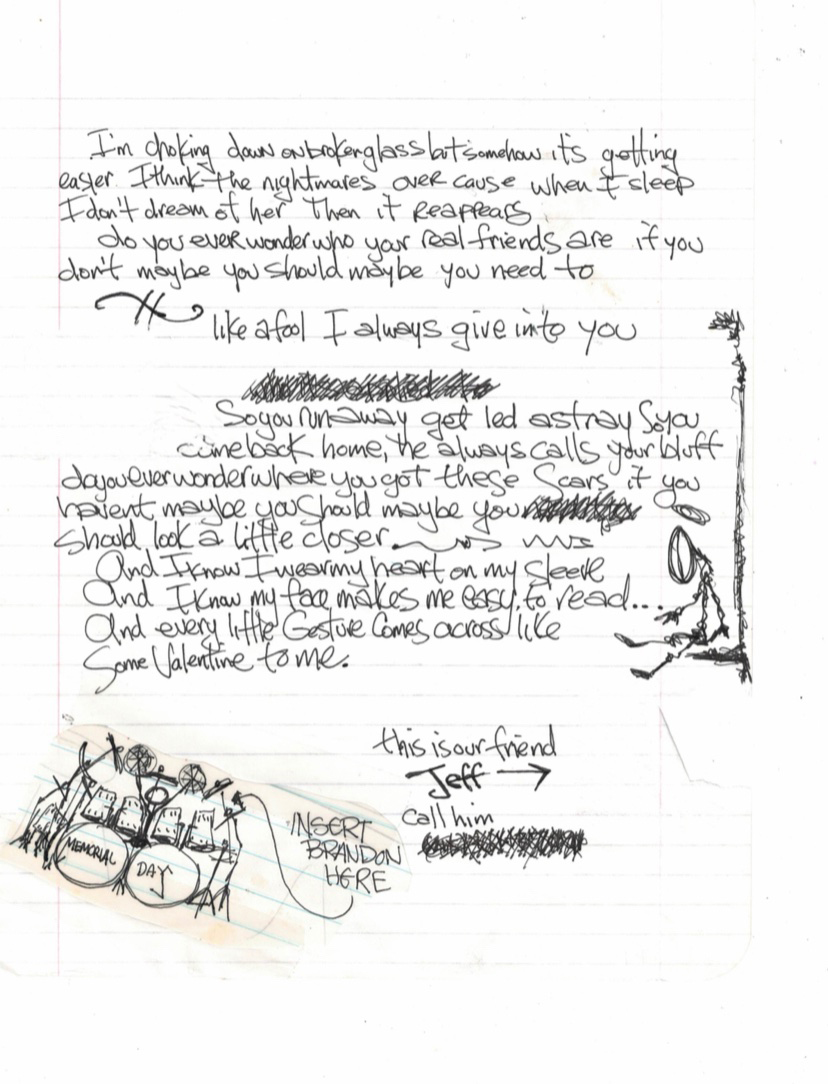 I'm choking down on broken glass but somehow it's getting
easier. I think the nightmares over cause when I sleep
I don't dream of her Then it Reappears
do you ever wonder who your real friends are if you
don't maybe you should maybe you need to
like a fool I always give in to you
So you run away get led astray So you
come back home, he always calls your bluff
do you ever wonder where you got these Scars if you
havent maybe you should maybe you
should look a little closer
And I know I wear my heart on my sleeve
And I know my face makes me easy to read...
And every little Gesture Comes across like
Some Valentine to me.
this is our friend
Jeff
call him
INSERT
BRANDON
HERE
MEMORIAL
DAY